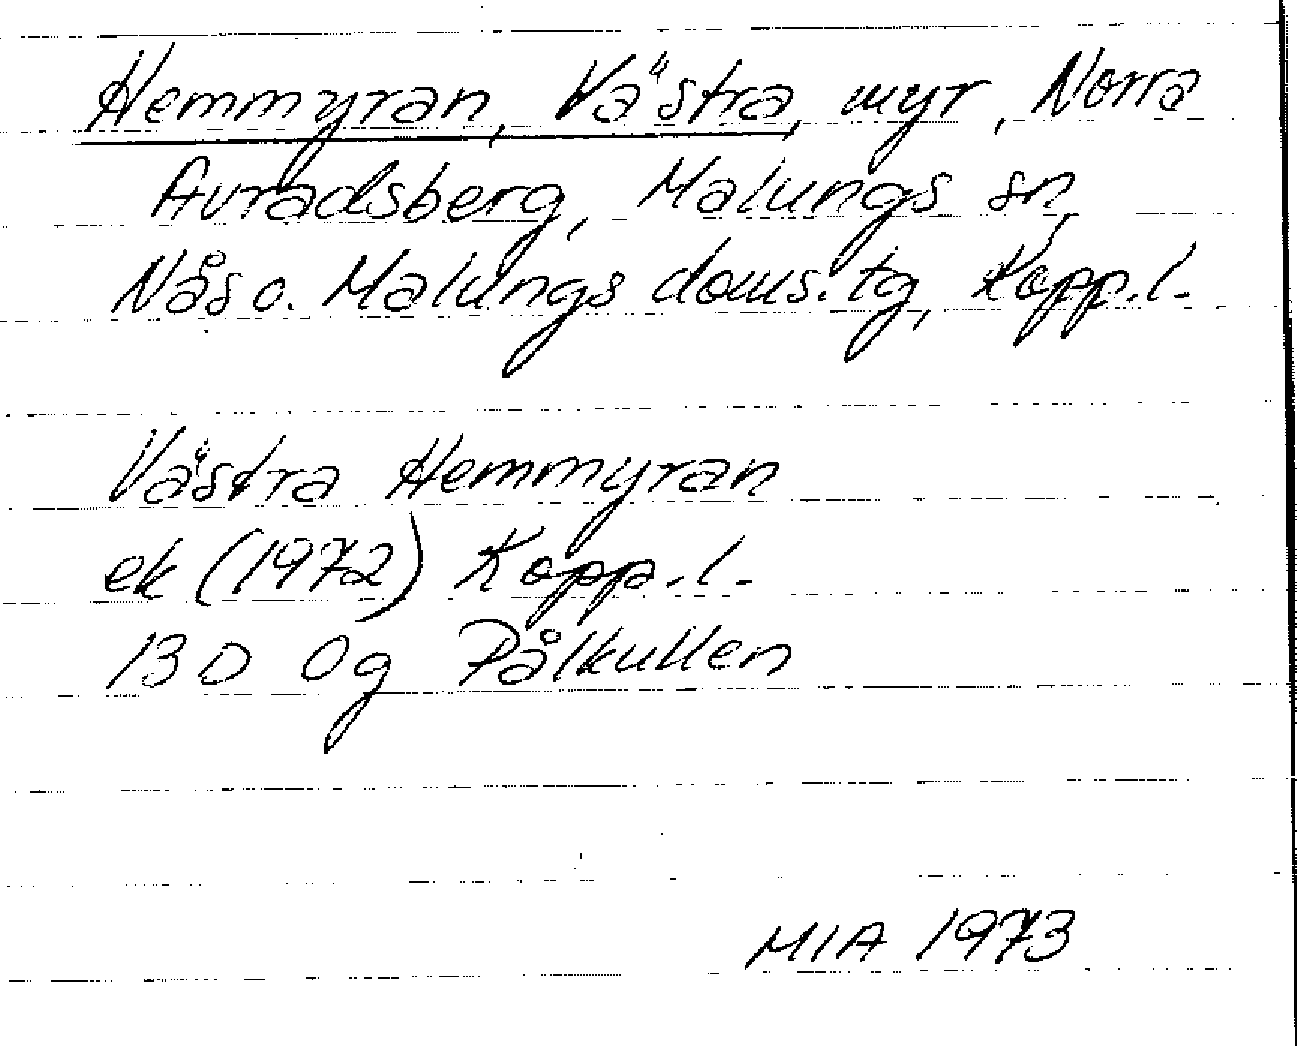 Hemmyran, Västra, myr, Norra
Avradsberg, Malungs sn,
Nås o. Malungs doms. tg, Kopp.l.
Västra Hemmyran
ek (1972) Kopp.l.
13 D 0g Pålkullen
MIA 1973